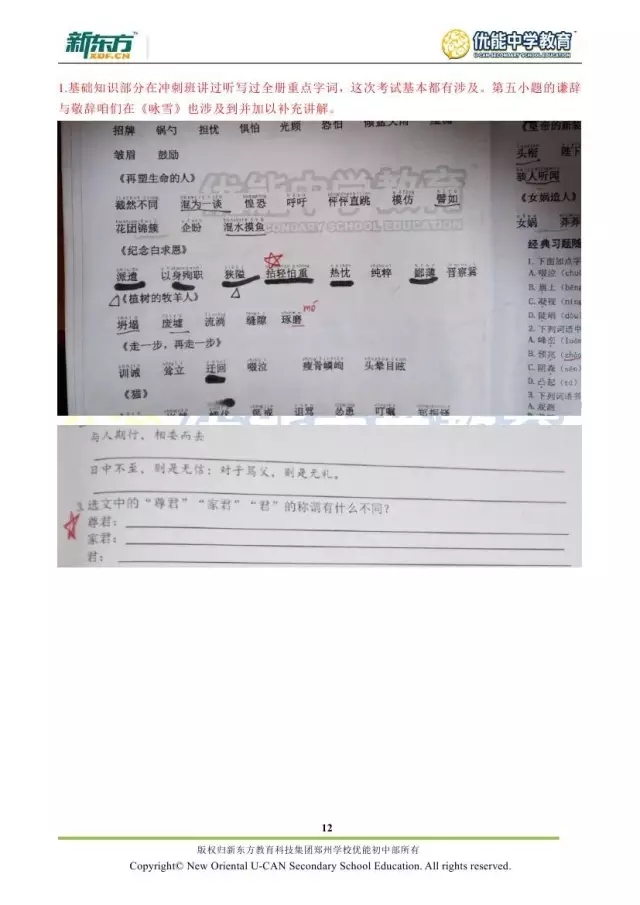 新东方
XDF.CN
优能中学教育
U-CAN SECONDARY SCHOOL EDUCATION
1.基础知识部分在冲刺班讲过听写过全册重点字词，这次考试基本都有涉及。第五小题的谦辞
与敬辞咱们在《咏雪》也涉及到并加以补充讲解。
招牌 锅勺 担忧 惧怕 光顾 恐怕
皱眉 鼓励
《再塑生命的人》
截然不同 混为一谈 惶恐 呼吁 怦怦直跳 模仿 譬如
花团锦簇 企盼 混水摸鱼
《纪念白求恩》
派遣 以身殉职 狭隘 拈轻怕重 热忱 纯粹 鄙薄 晋察冀
《植树的牧羊人》
坍塌 废墟 流淌 缝隙 琢磨 mó
《走一步，再走一步》
训诫 耸立 迂回 啜泣 瘦骨嶙峋 头晕目眩
《猫》
怂恿 叮嘱
头衔 陛下
骇人听闻
《女娲造人》
女娲 莽莽
经典习题随
1. 下面加点字
A. 啜泣
B. 崩土
C. 凝视
D. 陡峭
2. 下列词语中
A. 峰峦
B. 预兆
C. 阴森
D. 凸起
3. 下列词语书
A. 观测
与人期行，相委而去
日中不至，则是无信；对子骂父，则是无礼。
3.选文中的“尊君”“家君”“君”的称谓有什么不同？
尊君：
家君：
君：
12
版权归新东方教育科技集团郑州学校优能初中部所有
Copyright© New Oriental U-CAN Secondary School Education. All rights reserved.